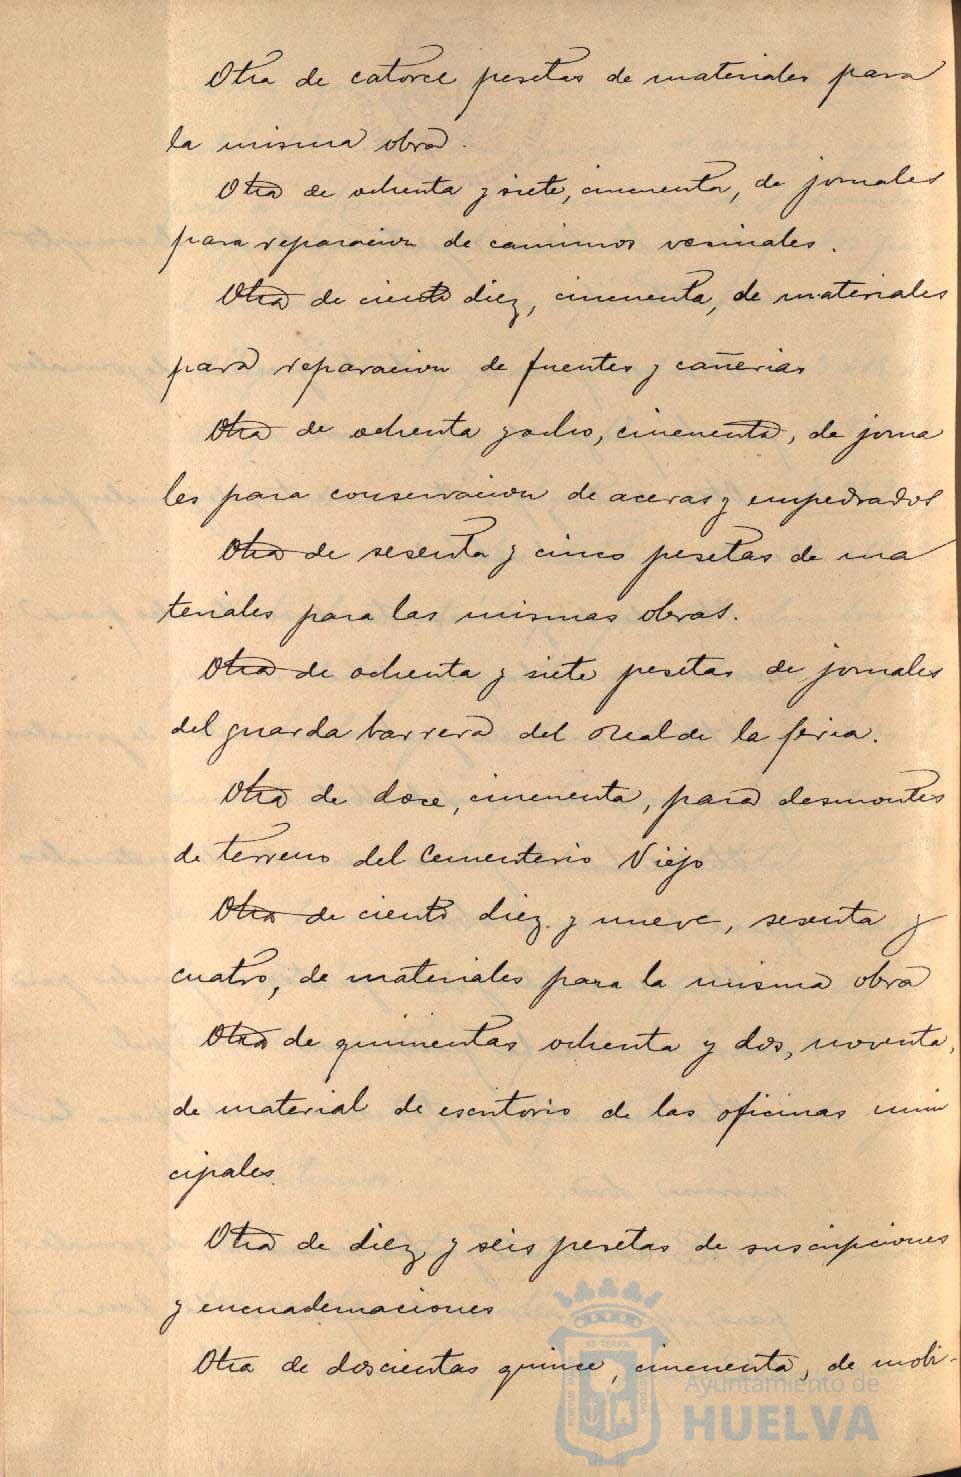 Otra de catorce pesetas de materiales para
la misma obra.
Otra de ochenta y siete, cincuenta, de jornales
para reparacion de caminos vecinales.
Otra de ciento diez, cincuenta, de materiales
para reparacion de fuentes y cañerias
Otra de ochenta y ocho, cincuenta, de jorna
les para conservacion de aceras y empedrados
Otra de sesenta y cinco pesetas de ma
teriales para las mismas obras.
Otra de ochenta y siete pesetas de jornales
del guarda barrera del Real de la feria.
Otra de doce, cincuenta, para desmontes
de terreno del Cementerio Viejo
Otra de ciento diez y nueve, sesenta y
cuatro, de materiales para la misma obra
Otra de quinientas ochenta y dos, noventa,
de material de escritorio de las oficinas muni
cipales.
Otra de diez y seis pesetas de suscripciones
y encuadernaciones
Otra de doscientas quince, cincuenta, de mobi-
ET TERRÆ
PORTUS MARIS
CUSTODIA
Ayuntamiento de
HUELVA